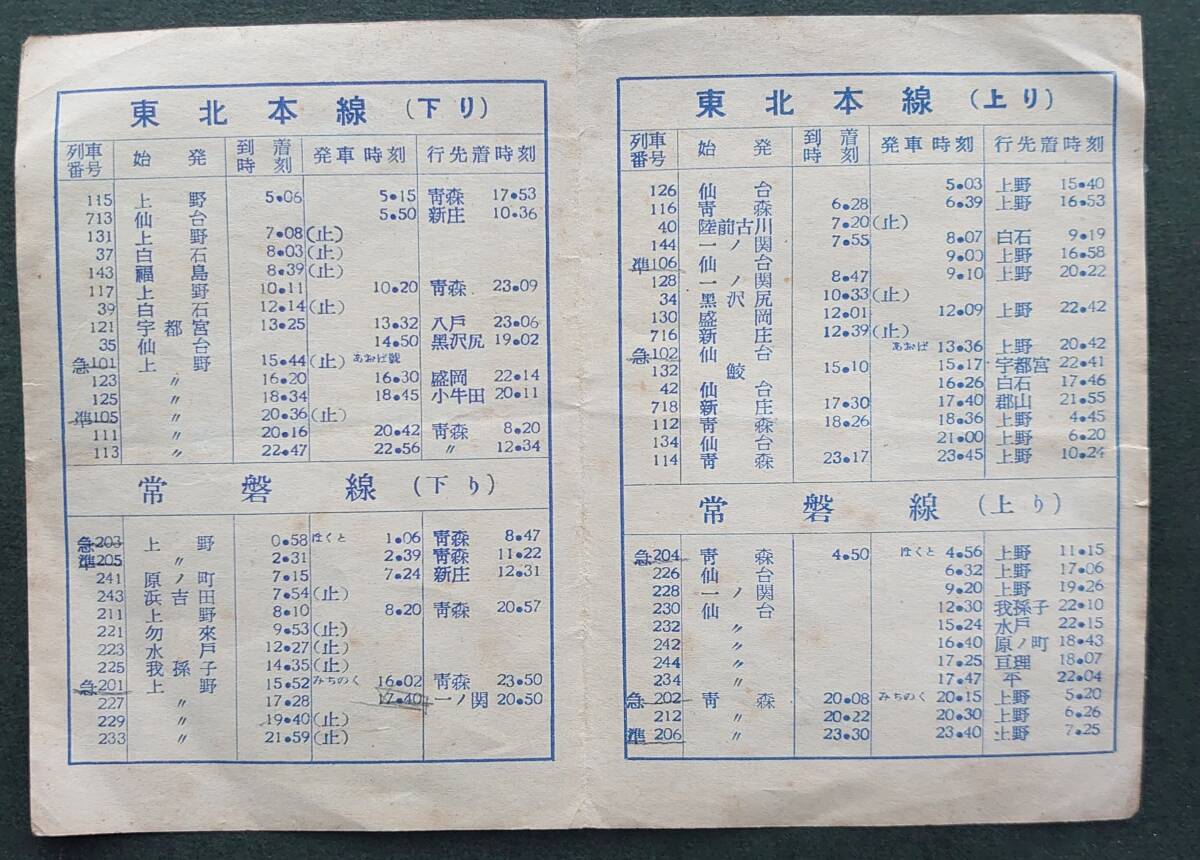 東北本線（下り）
列車番号 始発 到着時刻 発車時刻 行先着時刻
115 上野 5.06 5.15 靑森 17.53
713 仙台 5.50 新庄 10.36
131 上野 7.08(止)
37 白石 8.03(止)
143 福島 8.39(止)
117 上野 10.11 10.20 靑森 23.09
39 白石 12.14(止)
121 宇都宮 13.25 13.32 八戸 23.06
35 仙台 14.50 黑沢尻 19.02
急101 上野 15.44(止) あおば號
123 〃 16.20 16.30 盛岡 22.14
125 〃 18.34 18.45 小牛田 20.11
準105 〃 20.36(止)
111 〃 20.16 20.42 靑森 8.20
113 〃 22.47 22.56 〃 12.34
常磐線（下り）
急203 上野 0.58 ほくと 1.06 靑森 8.47
準205 〃 2.31 2.39 靑森 11.22
241 原ノ町 7.15 7.24 新庄 12.31
243 浜吉田 7.54(止)
211 上野 8.10 8.20 靑森 20.57
221 勿來 9.53(止)
223 水戸 12.27(止)
225 我孫子 14.35(止)
急201 上野 15.52 みちのく 16.02 靑森 23.50
227 〃 17.28 17.40 一ノ関 20.50
229 〃 19.40(止)
233 〃 21.59(止)
東北本線（上り）
列車番号 始発 到着時刻 発車時刻 行先着時刻
126 仙台 5.03 上野 15.40
116 靑森 6.28 6.39 上野 16.53
40 陸前古川 7.20(止)
144 一ノ関 7.55 8.07 白石 9.19
準106 仙台 9.00 上野 16.58
128 一ノ関 8.47 9.10 上野 20.22
34 黑沢尻 10.33(止)
130 盛岡 12.01 12.09 上野 22.42
716 新庄 12.39(止)
急102 仙台 あおば 13.36 上野 20.42
132 鮫 15.10 15.17 宇都宮 22.41
42 仙台 16.26 白石 17.46
718 新庄 17.30 17.40 郡山 21.55
112 靑森 18.26 18.36 上野 4.45
134 仙台 21.00 上野 6.20
114 靑森 23.17 23.45 上野 10.24
常磐線（上り）
急204 靑森 4.50 ほくと 4.56 上野 11.15
226 仙台 6.32 上野 17.06
228 一ノ関 9.20 上野 19.26
230 仙台 12.30 我孫子 22.10
232 〃 15.24 水戸 22.15
242 〃 16.40 原ノ町 18.43
244 〃 17.25 亘理 18.07
234 〃 17.47 平 22.04
急202 靑森 20.08 みちのく 20.15 上野 5.20
212 〃 20.22 20.30 上野 6.26
準206 〃 23.30 23.40 上野 7.25